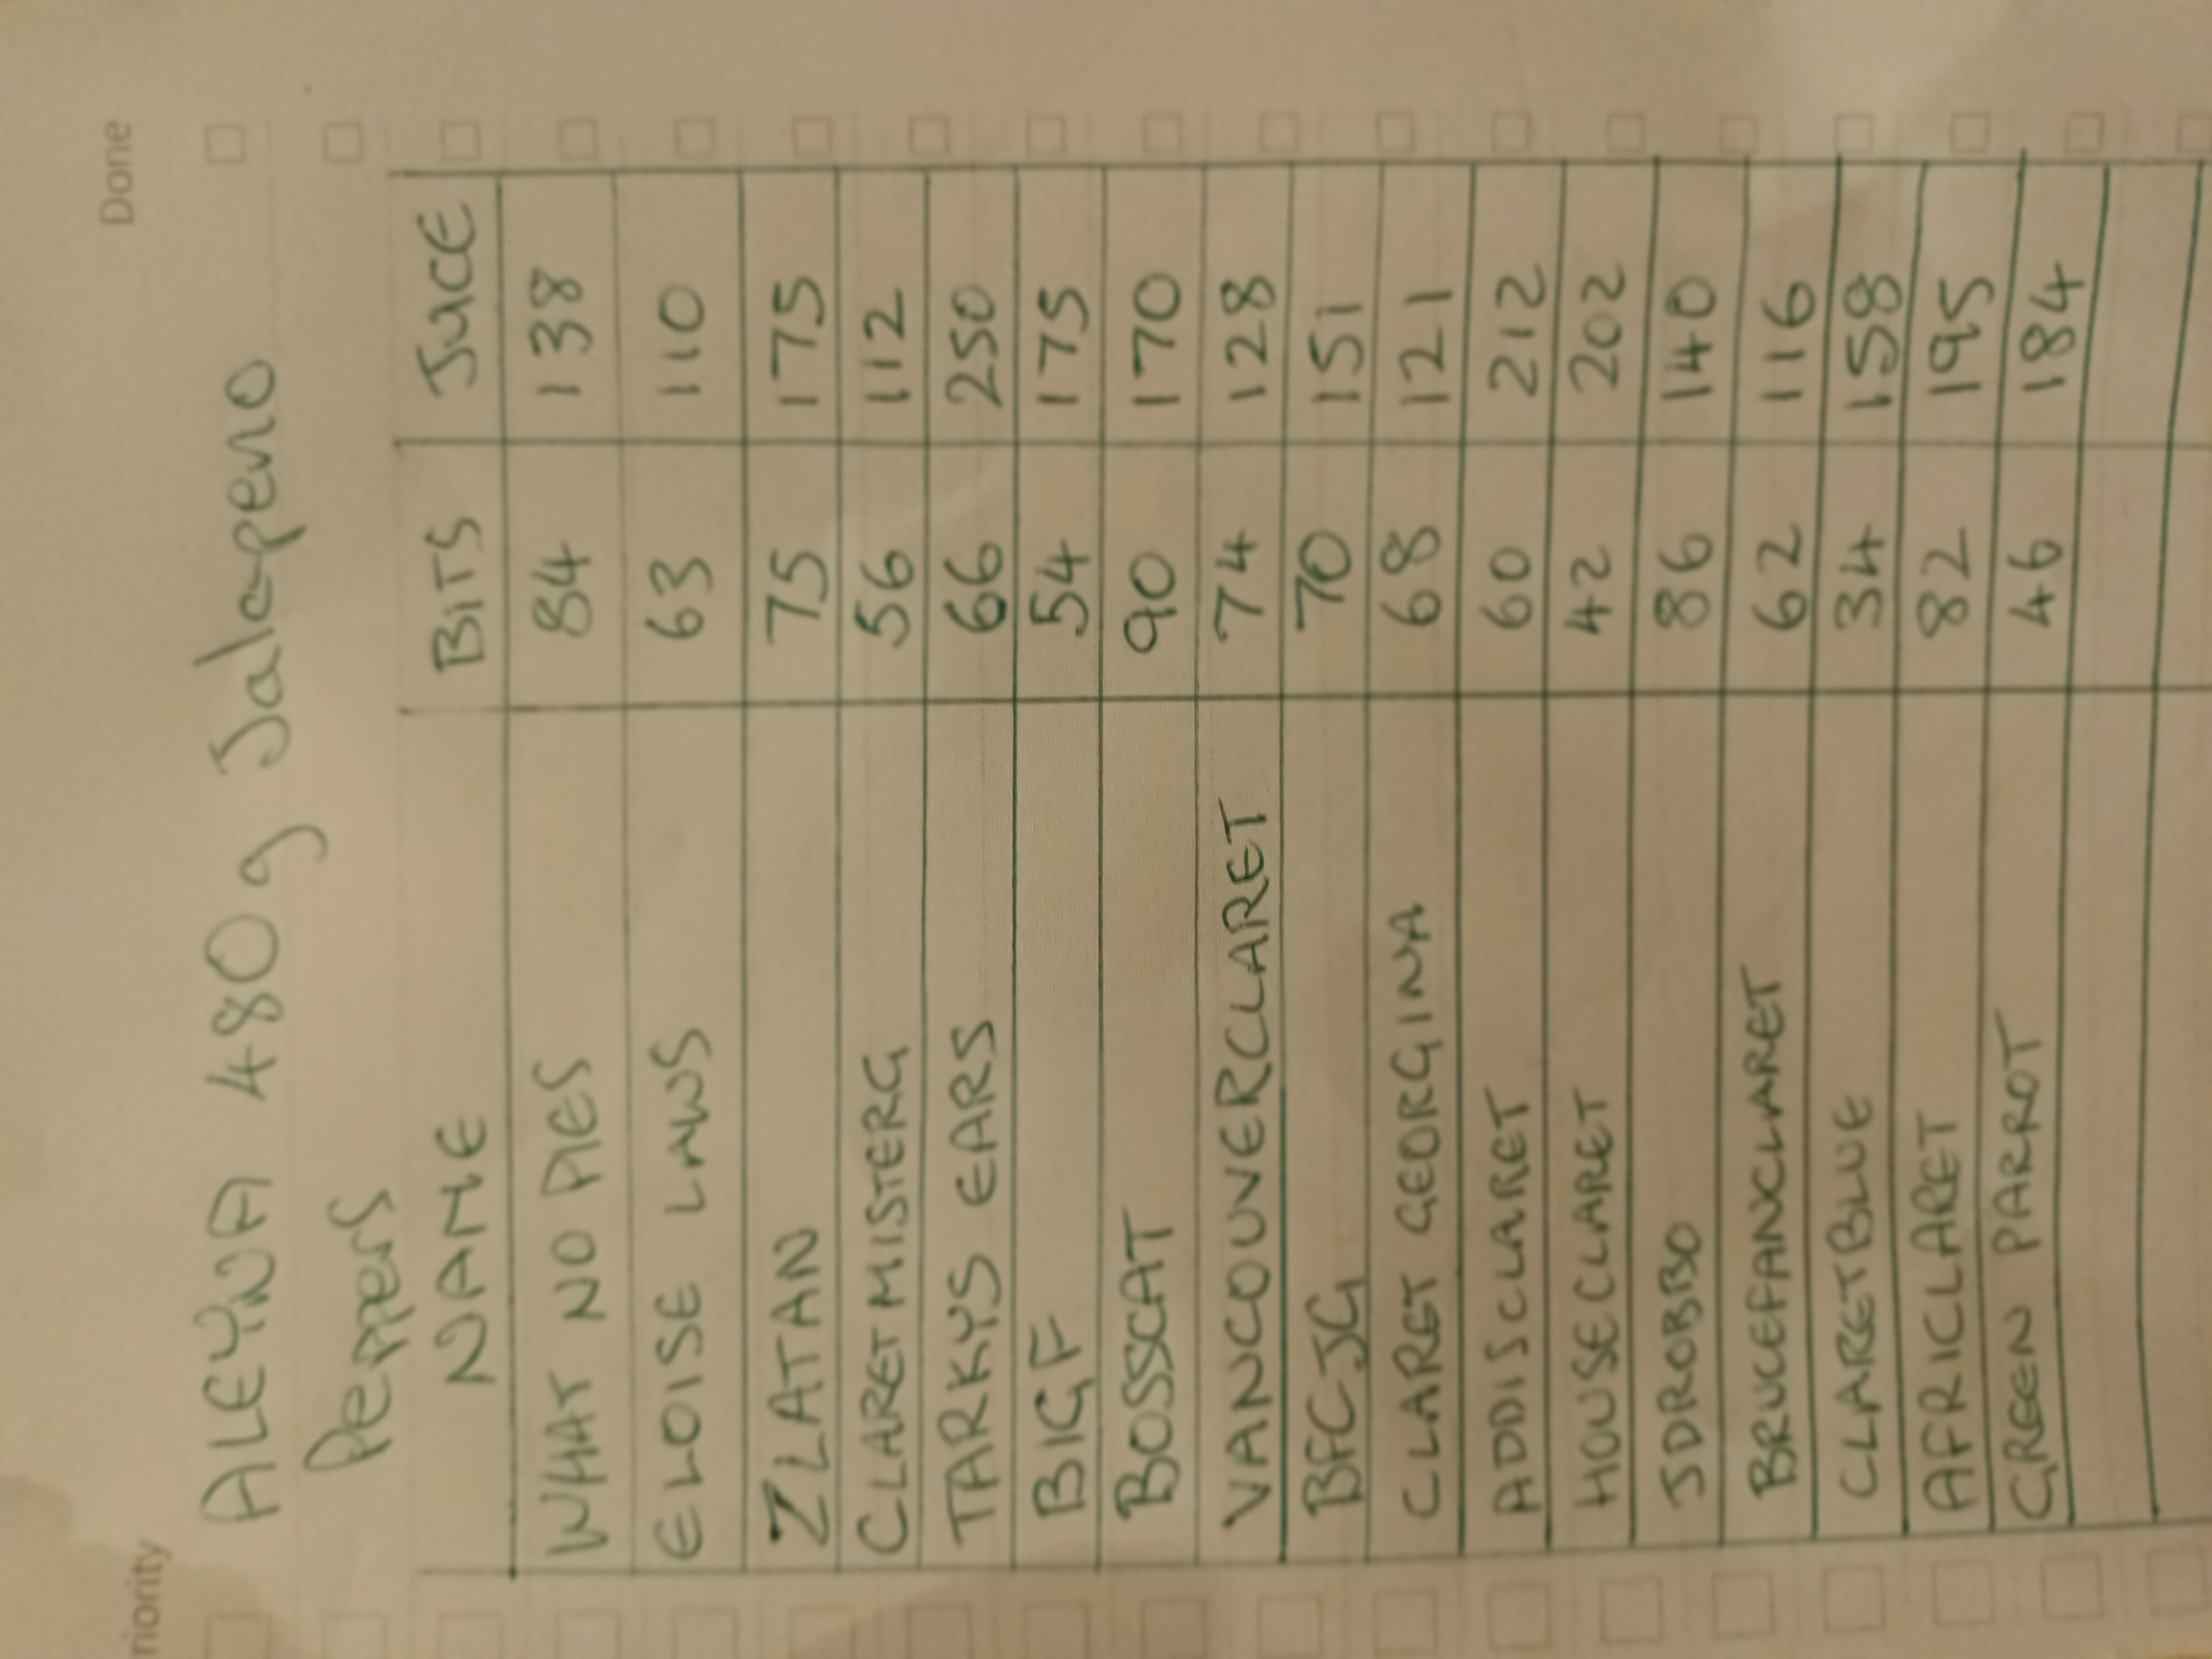 riority Done
ALEYNA 480g Jalapeno
Peppers
NAME BiTS JuiCE
WHAT NO PIES 84 138
ELOISE LAWS 63 110
ZLATAN 75 175
CLARETMISTERG 56 112
TARKYS EARS 66 250
BIGF 54 175
BOSSCAT 90 170
VANCOUVERCLARET 74 128
BFCJG 70 151
CLARET GEORGINA 68 121
ADDISCLARET 60 212
HOUSECLARET 42 202
JDROBBO 86 140
BRUCEFANCLARET 62 116
CLARETBLUE 34 158
AFRICLARET 82 195
GREEN PARROT 46 184